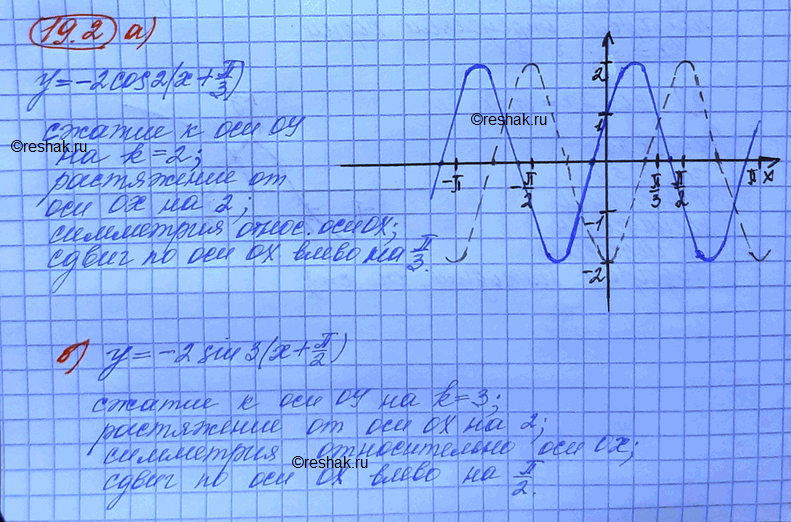 19.2 а)
y=-2cos2(x+π/3)
сжатие к оси ОУ
на k=2;
растяжение от
оси ОХ на 2;
симметрия относ. оси ОХ;
сдвиг по оси ОХ влево на π/3.
©reshak.ru
©reshak.ru
2
1
-π
-π/2
π/3
π/2
π
x
-1
-2
б) y=-2sin3(x+π/2)
сжатие к оси ОУ на k=3;
растяжение от оси ОХ на 2;
симметрия относительно оси ОХ;
©reshak.ru
сдвиг по оси ОХ влево на π/2.